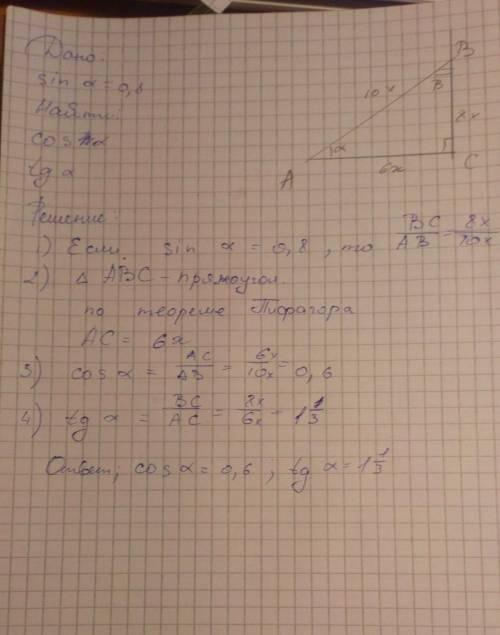 Дано:
sin α = 0,8
Найти:
cos α
tg α
B
B
10x
8x
α
A
6x
C
Решение:
1) Если sin α = 0,8, то BC/AB = 8x/10x
2) Δ ABC – прямоугол.
по теореме Пифагора
AC = 6x
3) cos α = AC/AB = 6x/10x = 0,6
4) tg α = BC/AC = 8x/6x = 1 1/3
Ответ; cos α = 0,6; tg α = 1 1/3